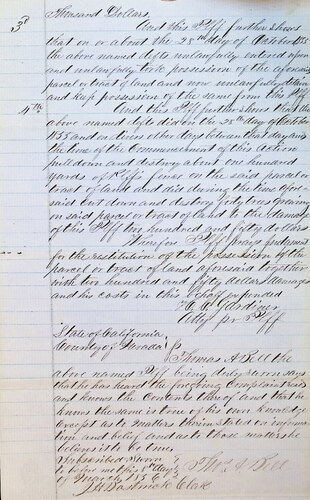 Thousand Dollars.
3d And this Plff further shows
that on or about the 28th day of October 1855
the above named defts unlawfully entered upon
and unlawfully took possession of the aforesaid
parcel or tract of land and now unlawfully detain
and keep possession of the same from this Plff
4th And this Plff further shows that the
above named defts did on the 28th day of October
1855 and on divers other days between that day and
the time of the Commencement of this action
pull down and destroy about one hundred
yards of Plffs fence on the said parcel or
tract of land and did during the time afore-
said cut down and destroy forty trees growing
on said parcel or tract of land to the damage
of this Plff two hundred and fifty dollars
Wherefore Plff prays judgment
for the restitution of the possession of the
parcel or tract of land aforesaid together
with two hundred and fifty dollars damages
and his costs in this behalf expended
Atty for Plff
State of California
County of Nevada } ss
Thomas A. Bell the
above named Plff being duly sworn says
that he has heard the foregoing Complaint read
and knows the Contents thereof and that he
knows the same is true of his own knowledge
except as to matters therein stated on informa-
tion and belief and as to those matters he
believes it to be true
Subscribed & sworn
to before me this day Thos A Bell
of March 1856
Clerk